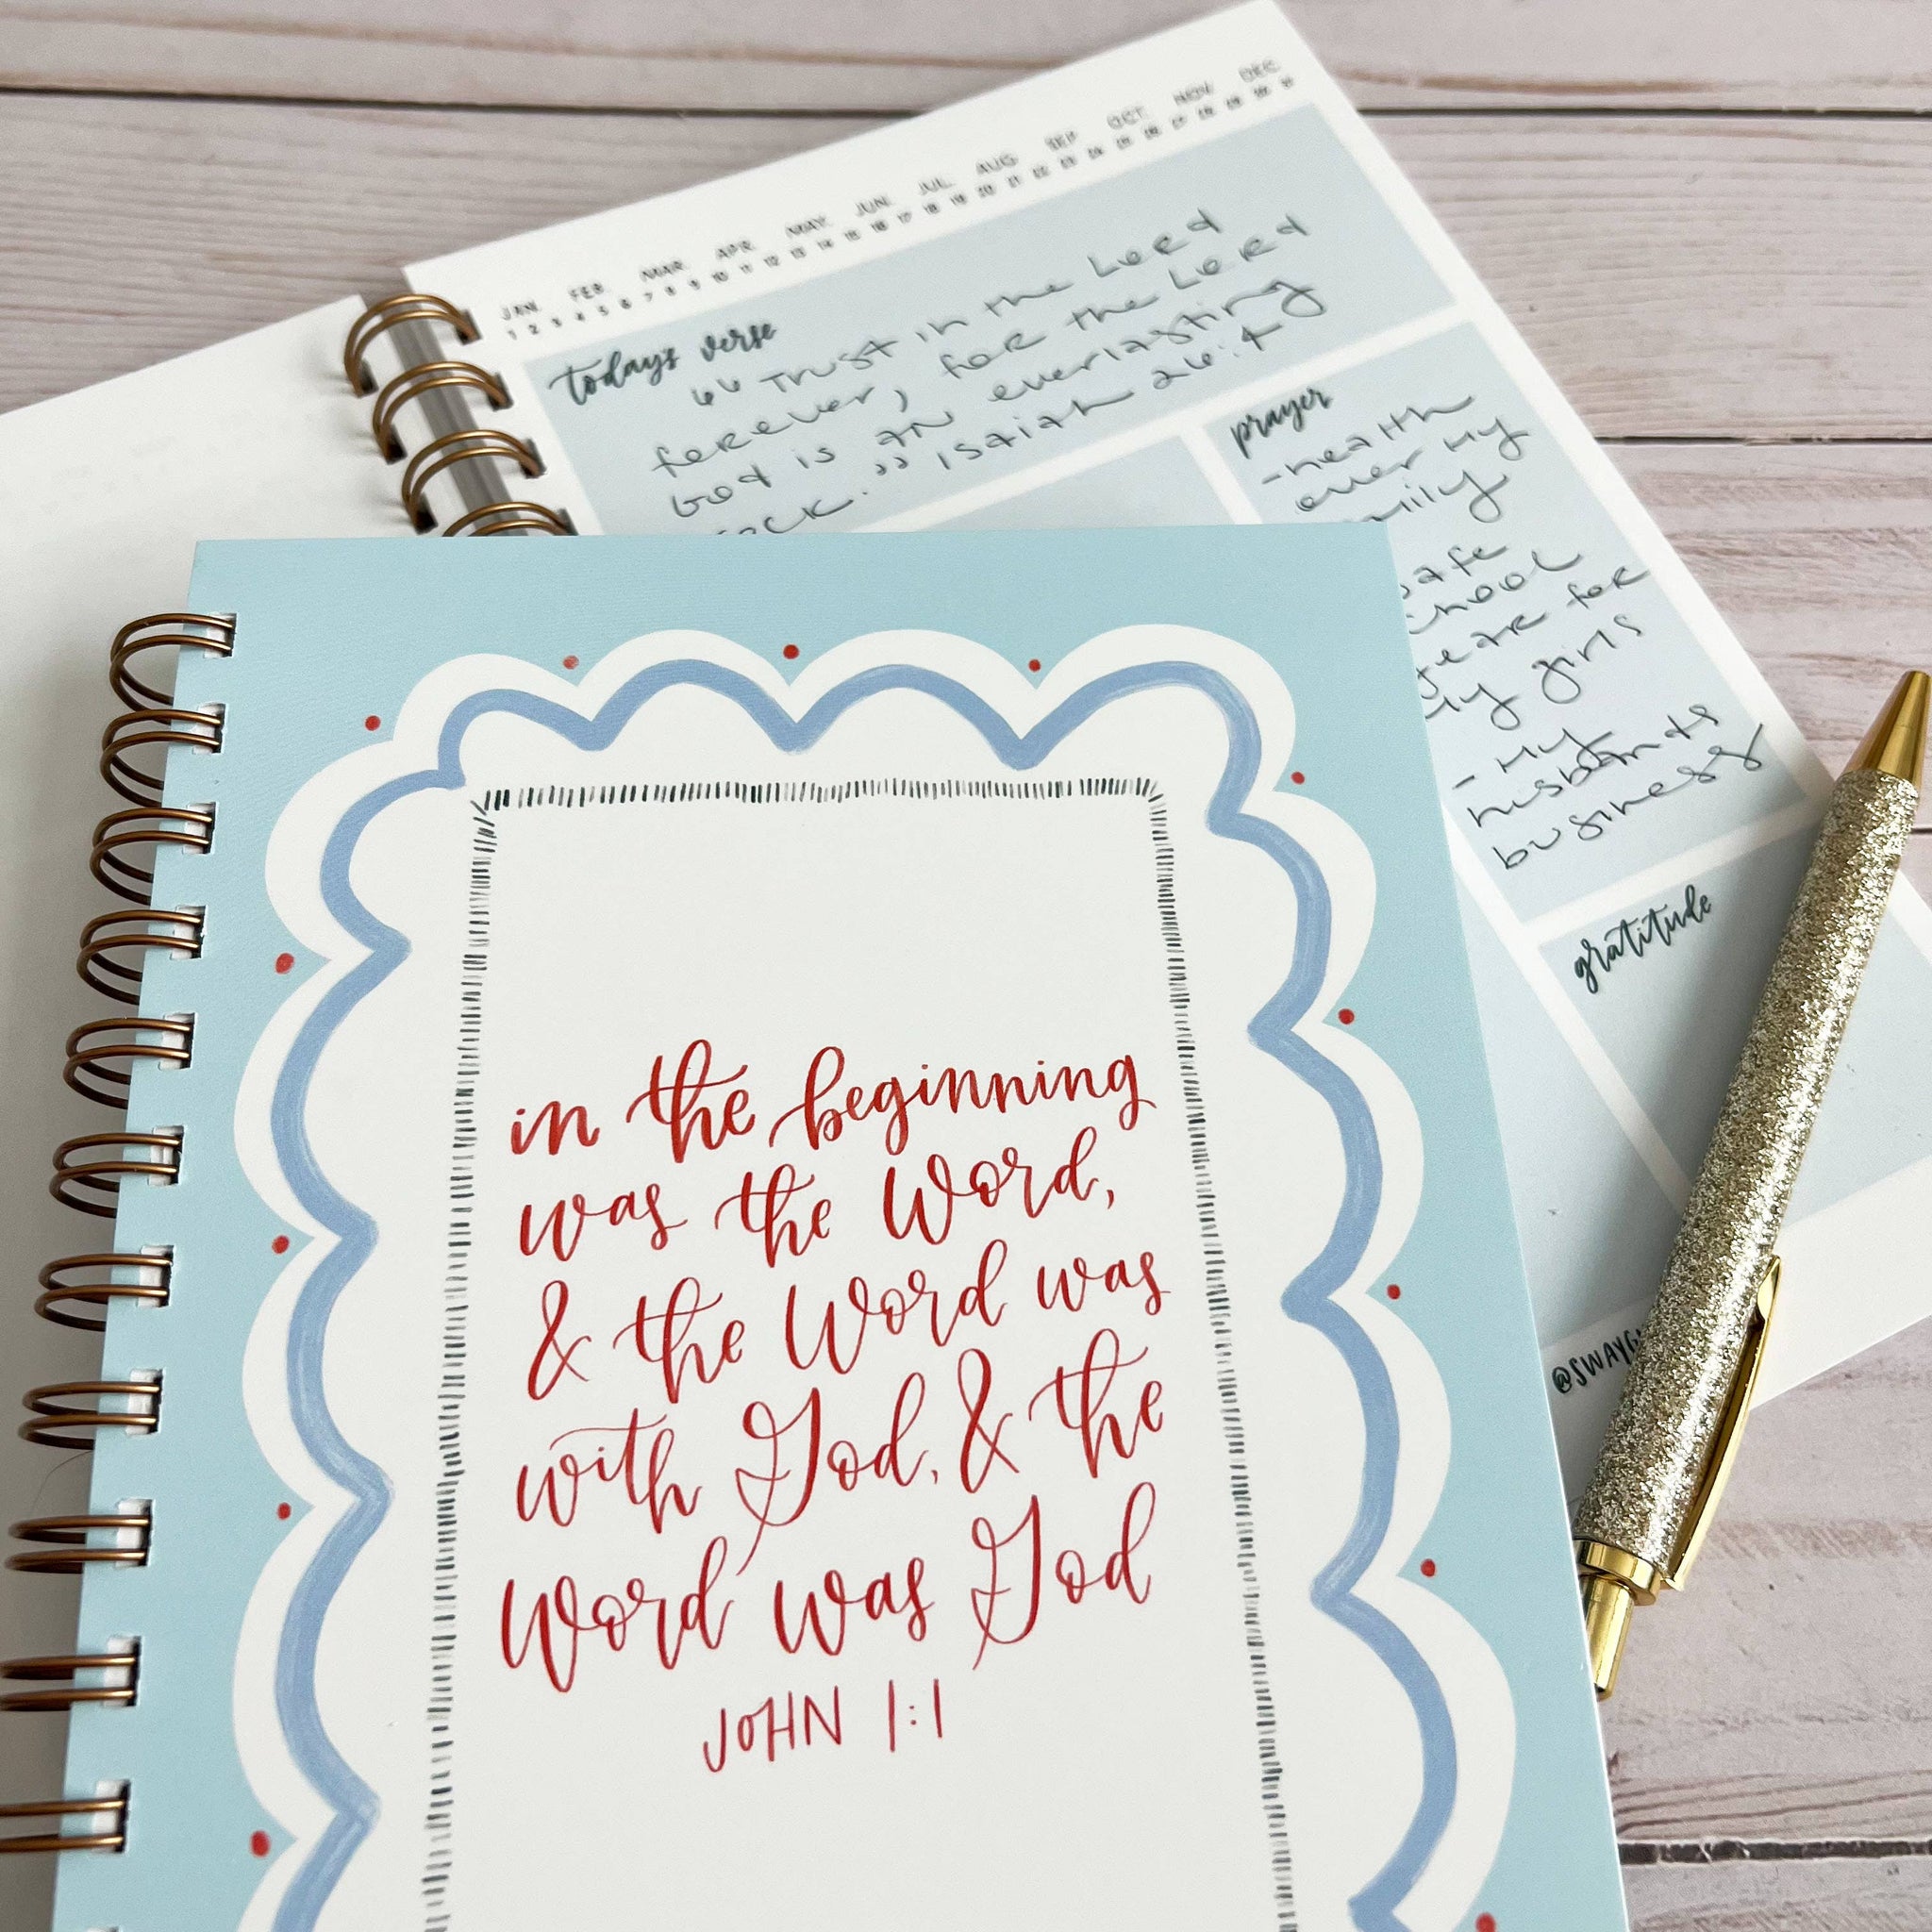 JAN. FEB. MAR. APR. MAY. JUN. JUL. AUG. SEP. OCT. NOV. DEC.
1 2 3 4 5 6 7 8 9 10 11 12 13 14 15 16 17 18 19 20 21 22 23 24 25 26 27 28 29 30 31
todays verse
"Trust in the Lord
forever, for the Lord
God is an everlasting
rock." Isaiah 26:4
prayer
-health
over my
family
safe
school
year for
my girls
- My
husbands
business
gratitude
in the beginning
was the Word,
& the Word was
with God, & the
Word was God
JOHN 1:1